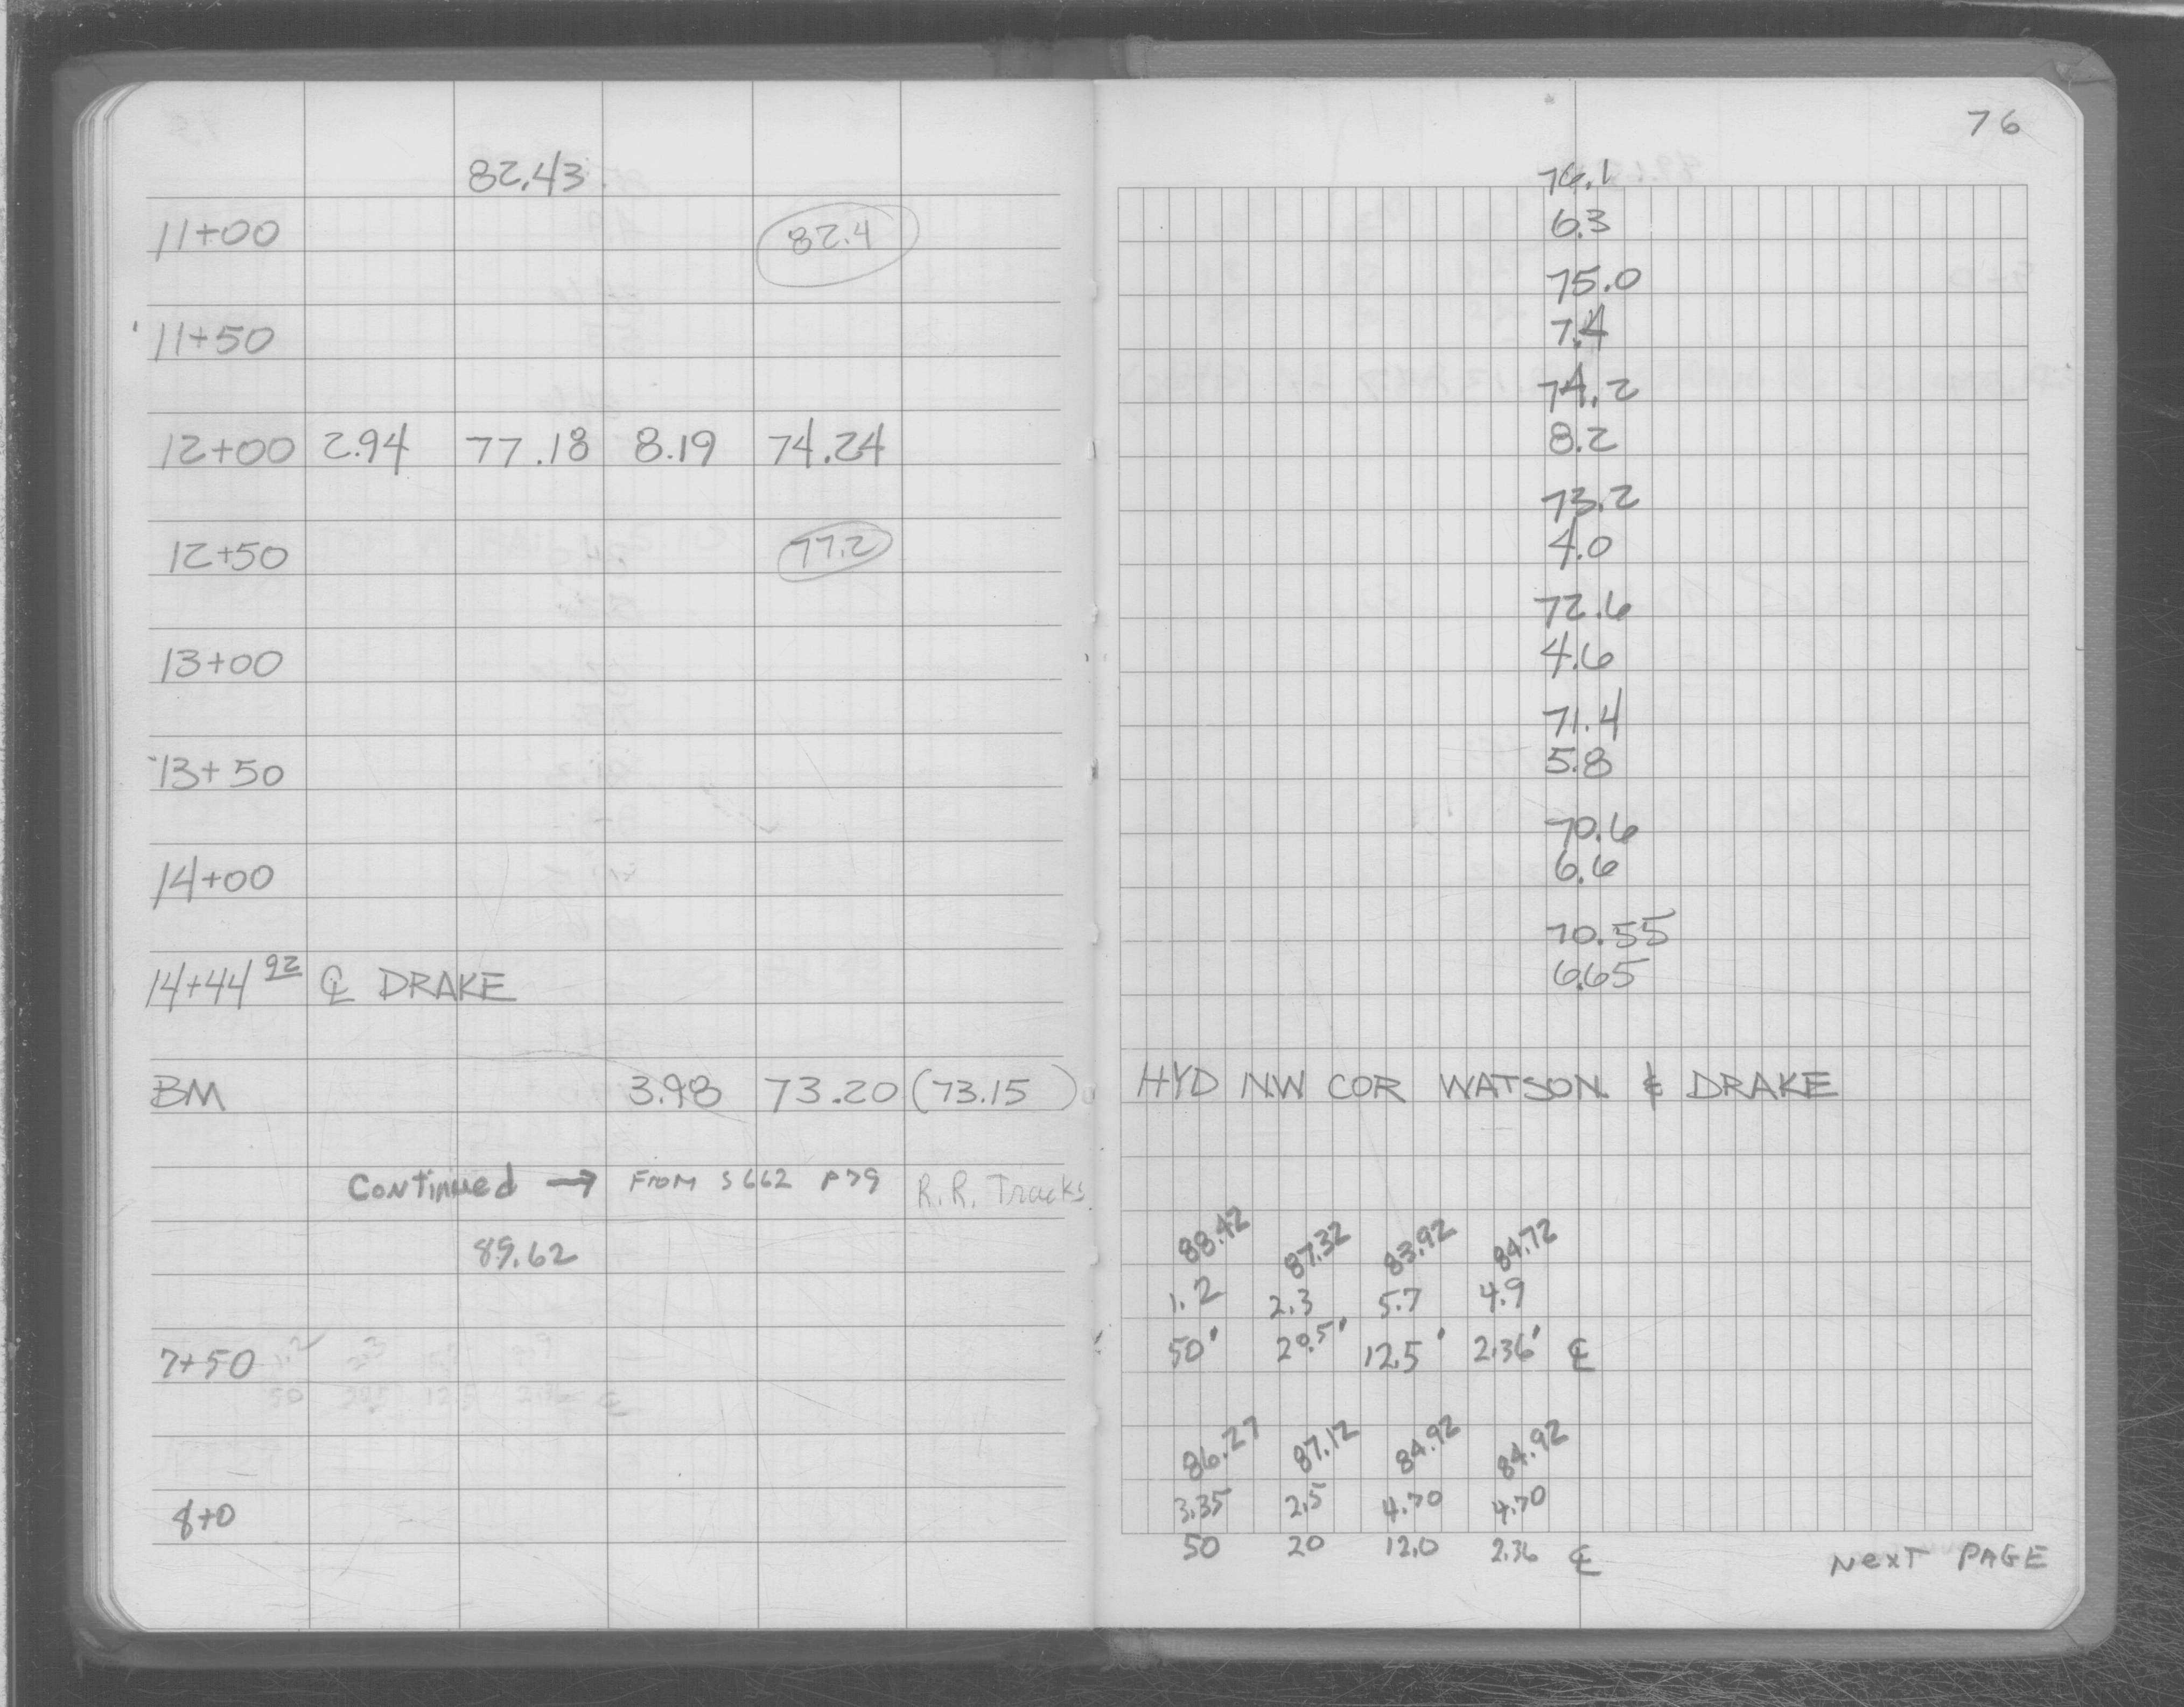 76
82.43
76.1
11+00 82.4 6.3
75.0
11+50 7.4
74.2
12+00 2.94 77.18 8.19 74.24 8.2
73.2
12+50 77.2 4.0
72.6
13+00 4.6
71.4
13+50 5.8
70.6
14+00 6.6
70.55
14+44 92 ℄ DRAKE 6.65
BM 3.98 73.20 (73.15) HYD N.W COR WATSON & DRAKE
Continued → From S662 P79 R.R. Tracks
89.62 88.42 87.32 83.92 84.72
1.2 2.3 5.7 4.9
7+50 50' 20.5' 12.5' 2.36' ℄
86.27 87.12 84.92 84.92
8+0 3.35 2.5 4.70 4.70
50 20 12.0 2.36 ℄
Next PAGE